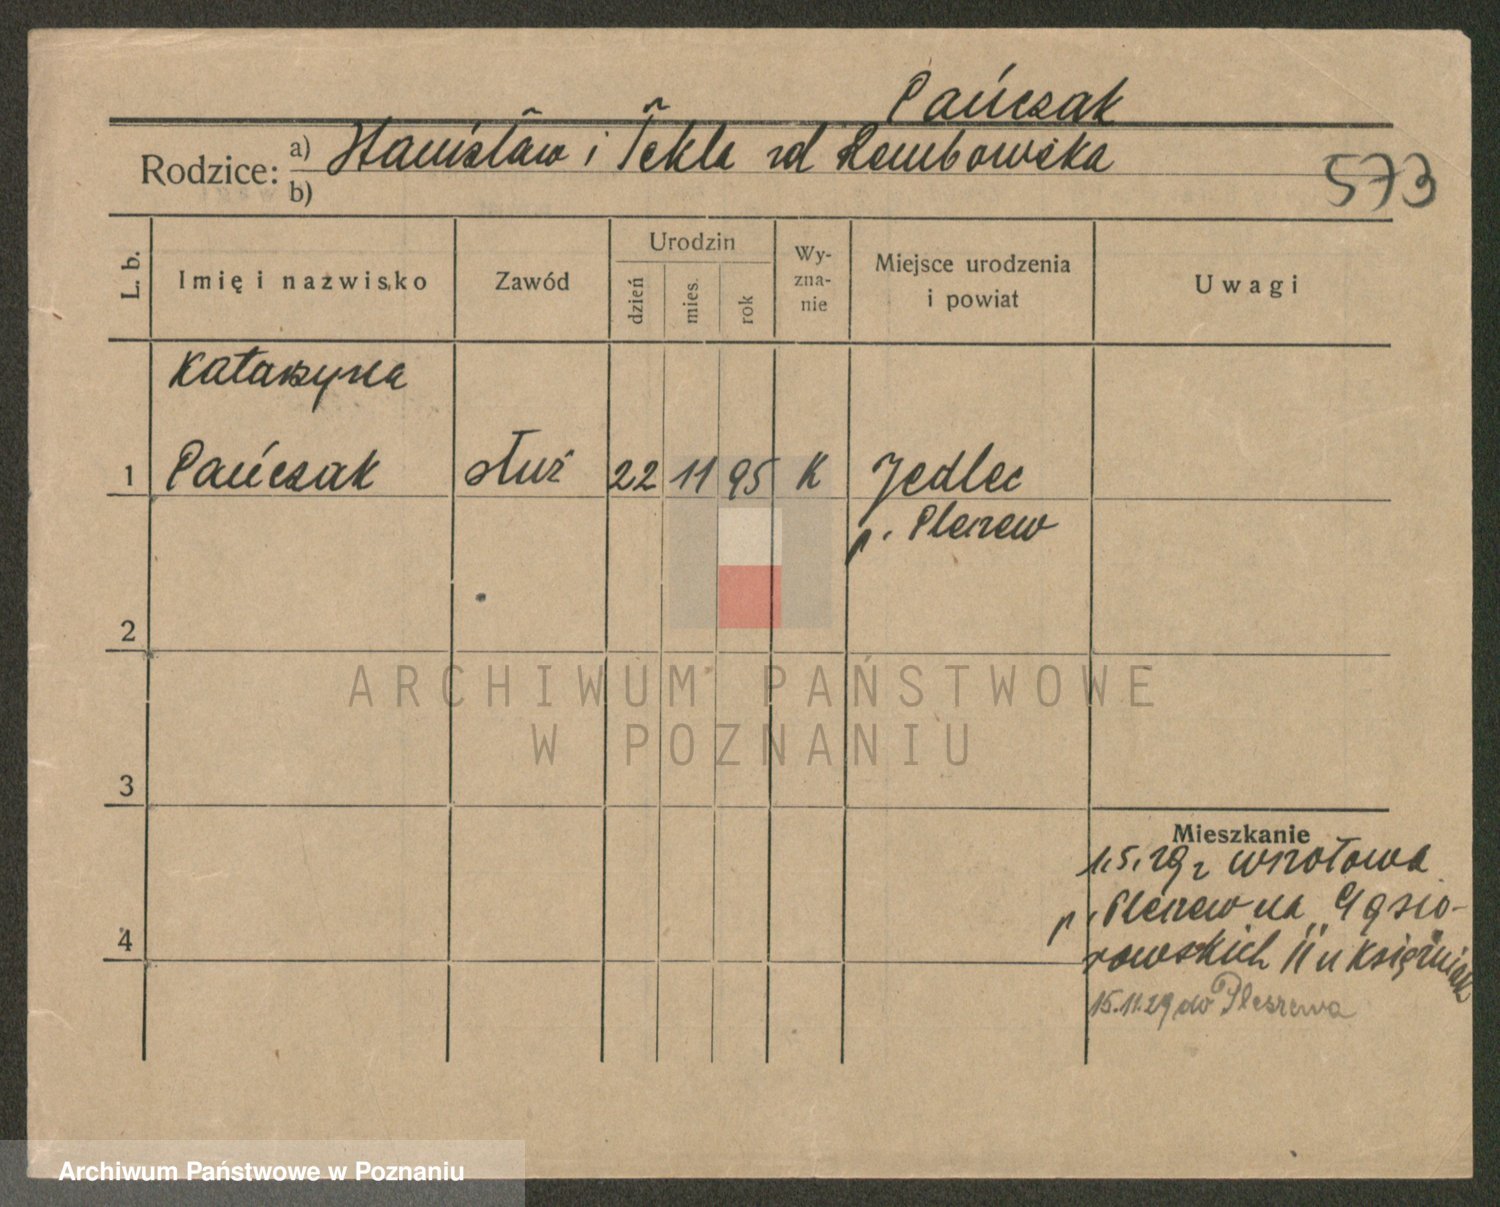 Pańczak
Rodzice: a) Stanisław i Tekla zd Rembowska
b)
573
L. b.
Imię i nazwisko
Zawód
Urodzin
dzień
mies.
rok
Wy-
zna-
nie
Miejsce urodzenia
i powiat
Uwagi
Katarzyna
1 Pańczak służ 22 11 95 K Jedlec
p. Pleszew
2
3
4
ARCHIWUM PAŃSTWOWE
W POZNANIU
Mieszkanie
1.5.29 z
p. Pleszew na „Gąsio-
rowskich" u Księżniak
15.11.29 do Pleszewa
Archiwum Państwowe w Poznaniu